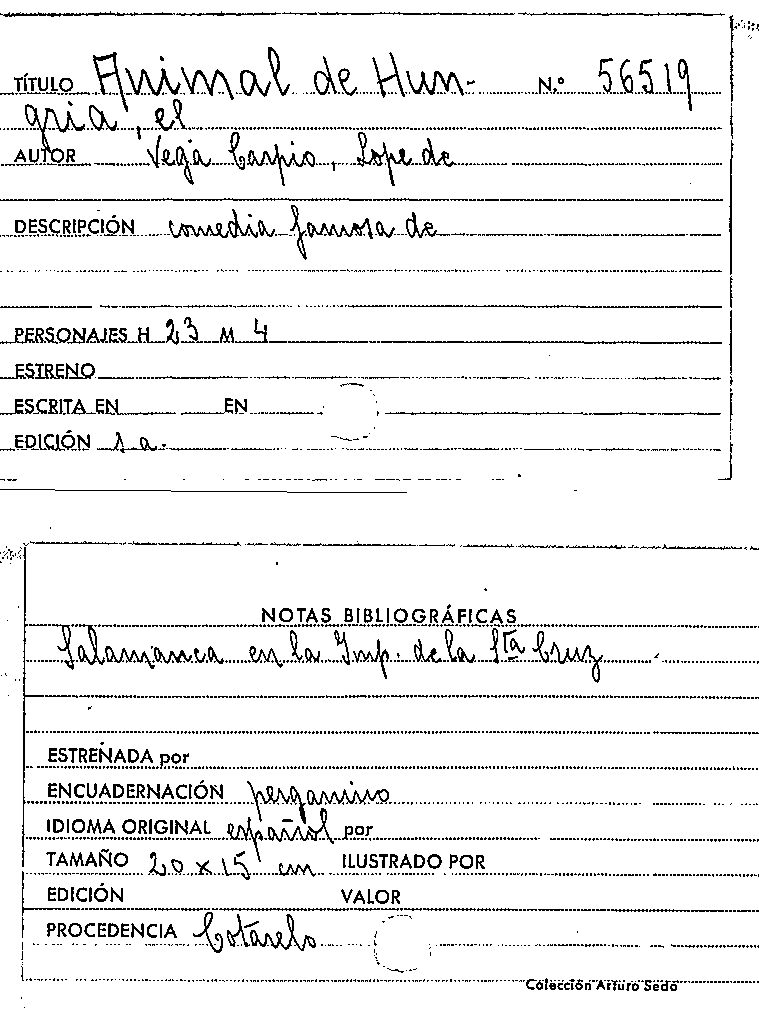 TÍTULO Animal de Hun- N.° 56519
gria, el
AUTOR Vega Carpio, Lope de
DESCRIPCIÓN comedia famosa de
PERSONAJES H 23 M 4
ESTRENO
ESCRITA EN EN
EDICIÓN s.a.
NOTAS BIBLIOGRÁFICAS
Salamanca en la Imp. de la Sta Cruz
ESTRENADA por
ENCUADERNACIÓN pergamino
IDIOMA ORIGINAL español por
TAMAÑO 20 x 15 cm ILUSTRADO POR
EDICIÓN VALOR
PROCEDENCIA Cotarelo
Colección Arturo Sedó